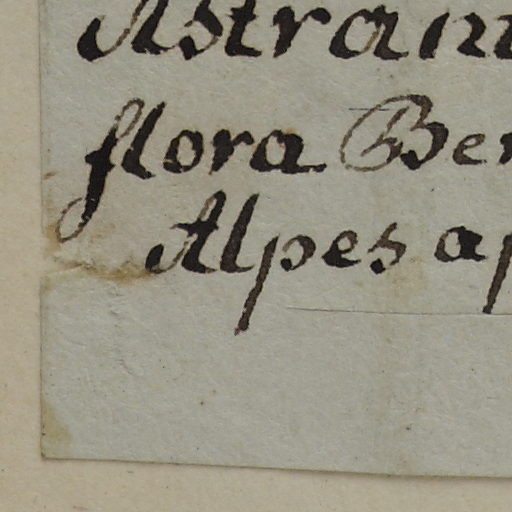 Astran
flora Ber
Alpes ap